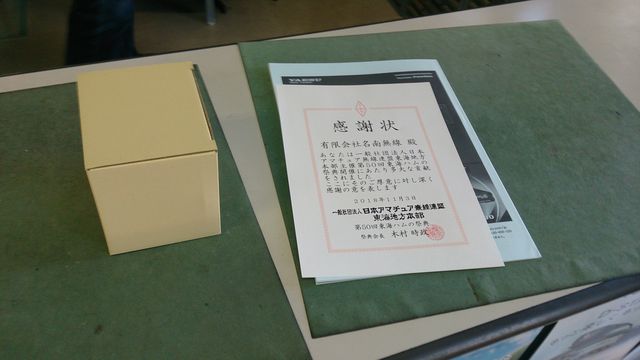 YAESU
感謝状
有限会社名南無線 殿
あなたは一般社団法人日本
アマチュア無線連盟東海地方
本部主催第50回東海ハムの
祭典開催にあたり多大な貢献
をされました
ここにそのご厚意に対し深く
感謝の意を表します
2018年11月3日
一般社団法人日本アマチュア無線連盟
東海地方本部
第50回東海ハムの祭典
祭典会長 木村時政